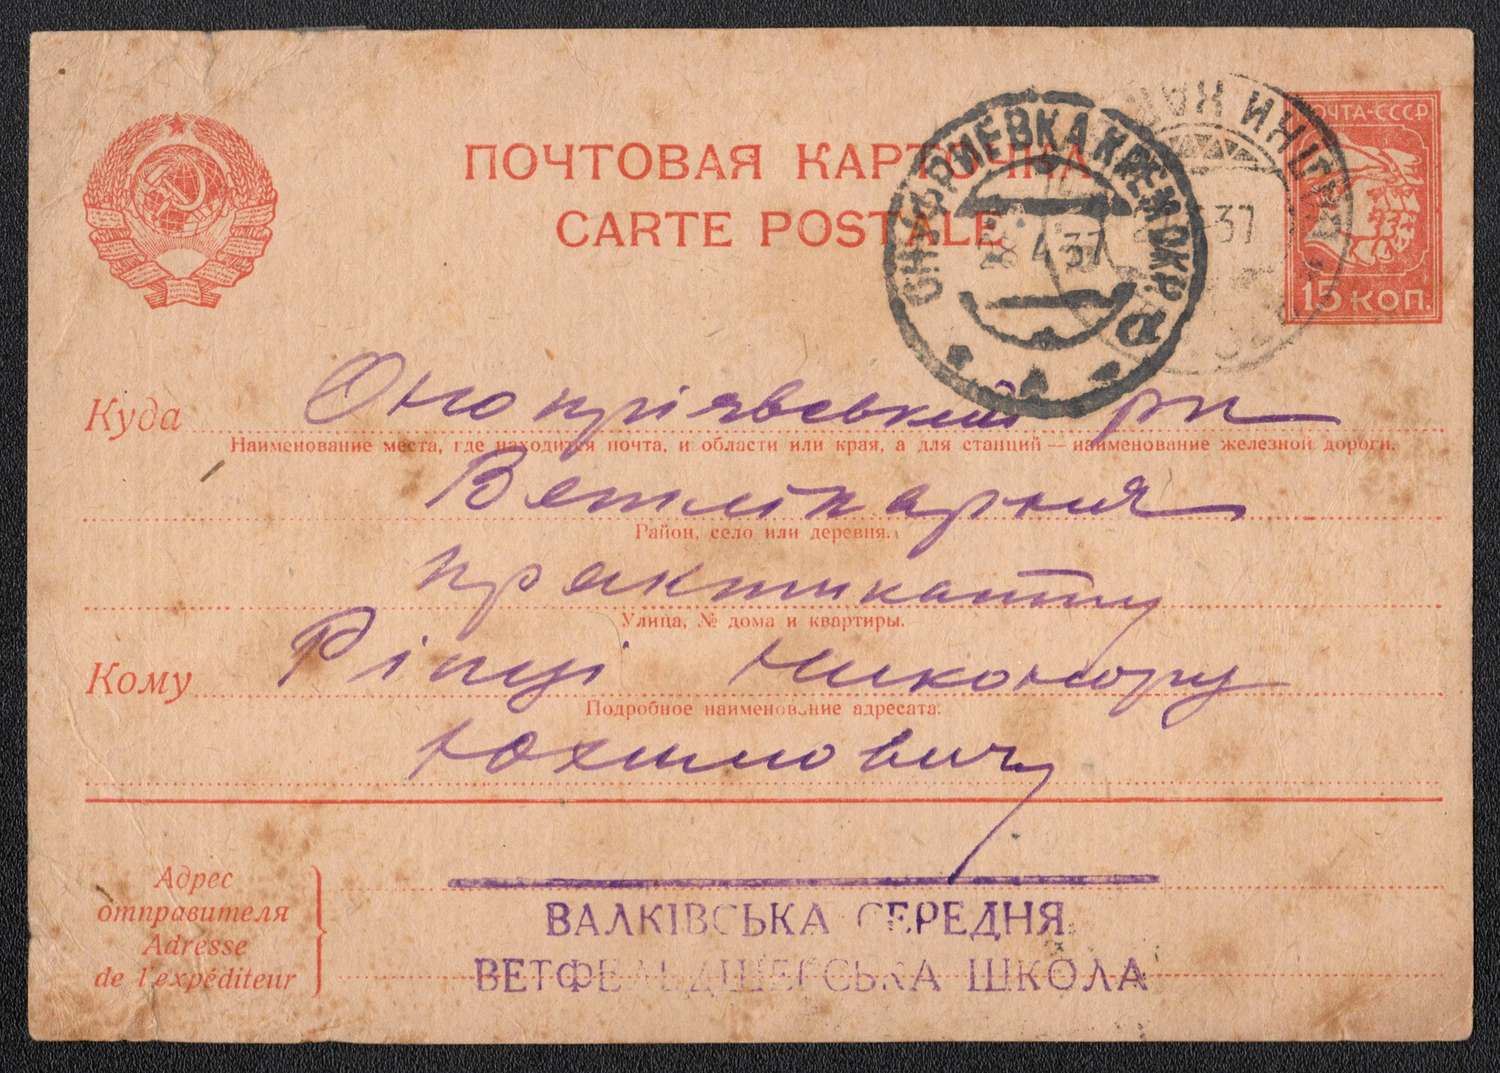 ПОЧТОВАЯ КАРТОЧКА
CARTE POSTALE
ПОЧТА-СССР
15 КОП.
ОНУФРИЕВКА КРЕМ.ОКР.
28 4 37
а
37
Куда Оноприявський рп
Наименование места, где находится почта, и области или края, а для станций — наименование железной дороги.
Ветлікарня
Район, село или деревня.
практиканту
Улица, № дома и квартиры.
Кому Ріпці Никонору
Подробное наименование адресата.
Юхимовичу
Адрес
отправителя
Adresse
de l'expéditeur
ВАЛКІВСЬКА СЕРЕДНЯ
ВЕТФЕЛЬДШЕРСЬКА ШКОЛА